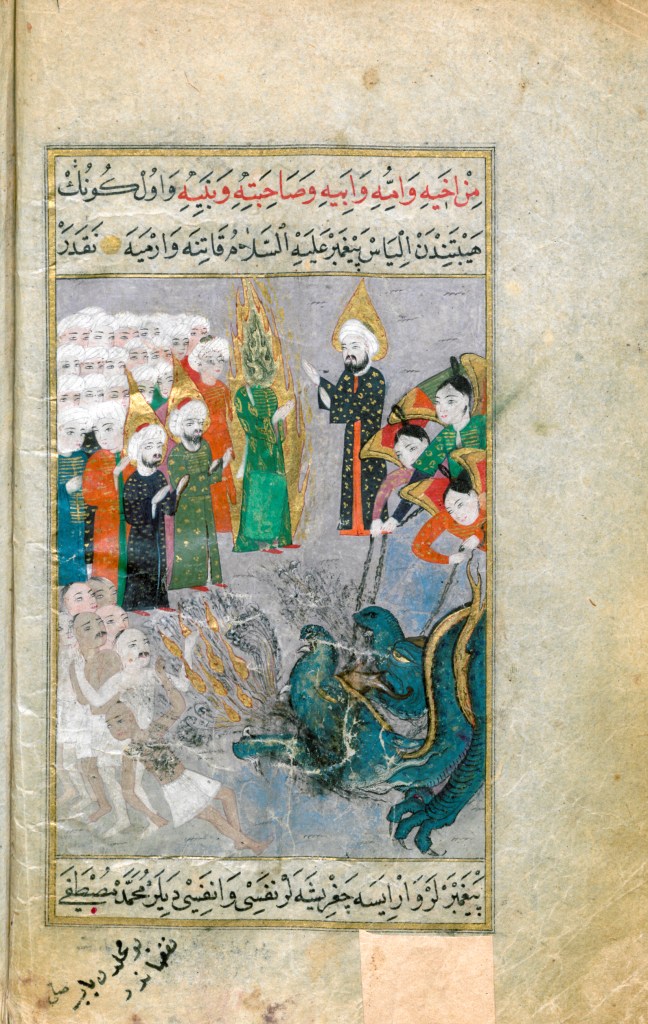 مِنْ اَخِيهِ وَاُمِّهِ وَاَبِيهِ وَصَاحِبَتِهِ وَبَنِيهِ وَاوُل كُونُكْ
هَيْبَتِنْدَنْ اِلْيَاسْ پَيْغَمْبَرْ عَلَيْهِ السَّلَامُ قَاتِنَه وَارْمِيَه نَقَدَرْ
پَيْغَمْبَرْلَرْ وَارْايسَه چَغْرِيشَه لَرْ نَفْسِى وَانَفْسِى دِيلَرْ مُحَمَّدْ مُصْطَفَى
بو محلدن باب
نقصاندر